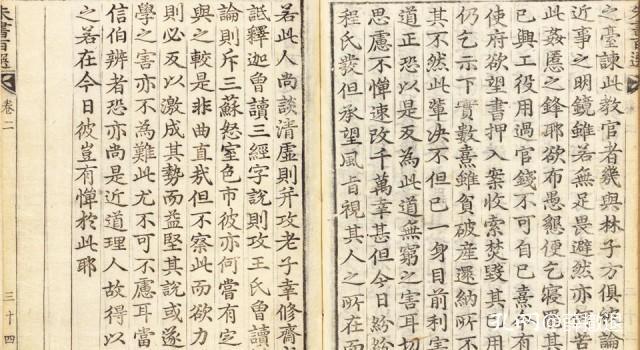 之臺諫此教官者幾與林子方俱論
近事之明鏡雖若無足畏避然亦
此姦慝之鋒耶欲布愚懇便乞寢罷其
已興工役用過官錢不可自已熹
使府欲望書押入案收索焚毀其已用
仍乞示下實數熹雖貧破産還納所不
其不然此輩决不但已一身目前利害
道正恐以是反為此道無窮之害耳切
思慮不憚速改千萬幸甚但今日紛紛
程氏發但承望風旨視其人之所在而
若此人尚談清虛則并攻老子幸修齋
詆釋迦曾讀三經字說則攻王氏曾讀
論則斥三蘇怒室色市彼亦何嘗有定
與之較是非曲直哉但不察此而欲力
則必反以激成其勢而益堅其說或遂
學之害亦不為難此尤不可不慮耳當
信伯辨者恐亦尚是近道理人故得以
之若在今日彼豈有憚於此耶
朱書百選
卷二
三十四